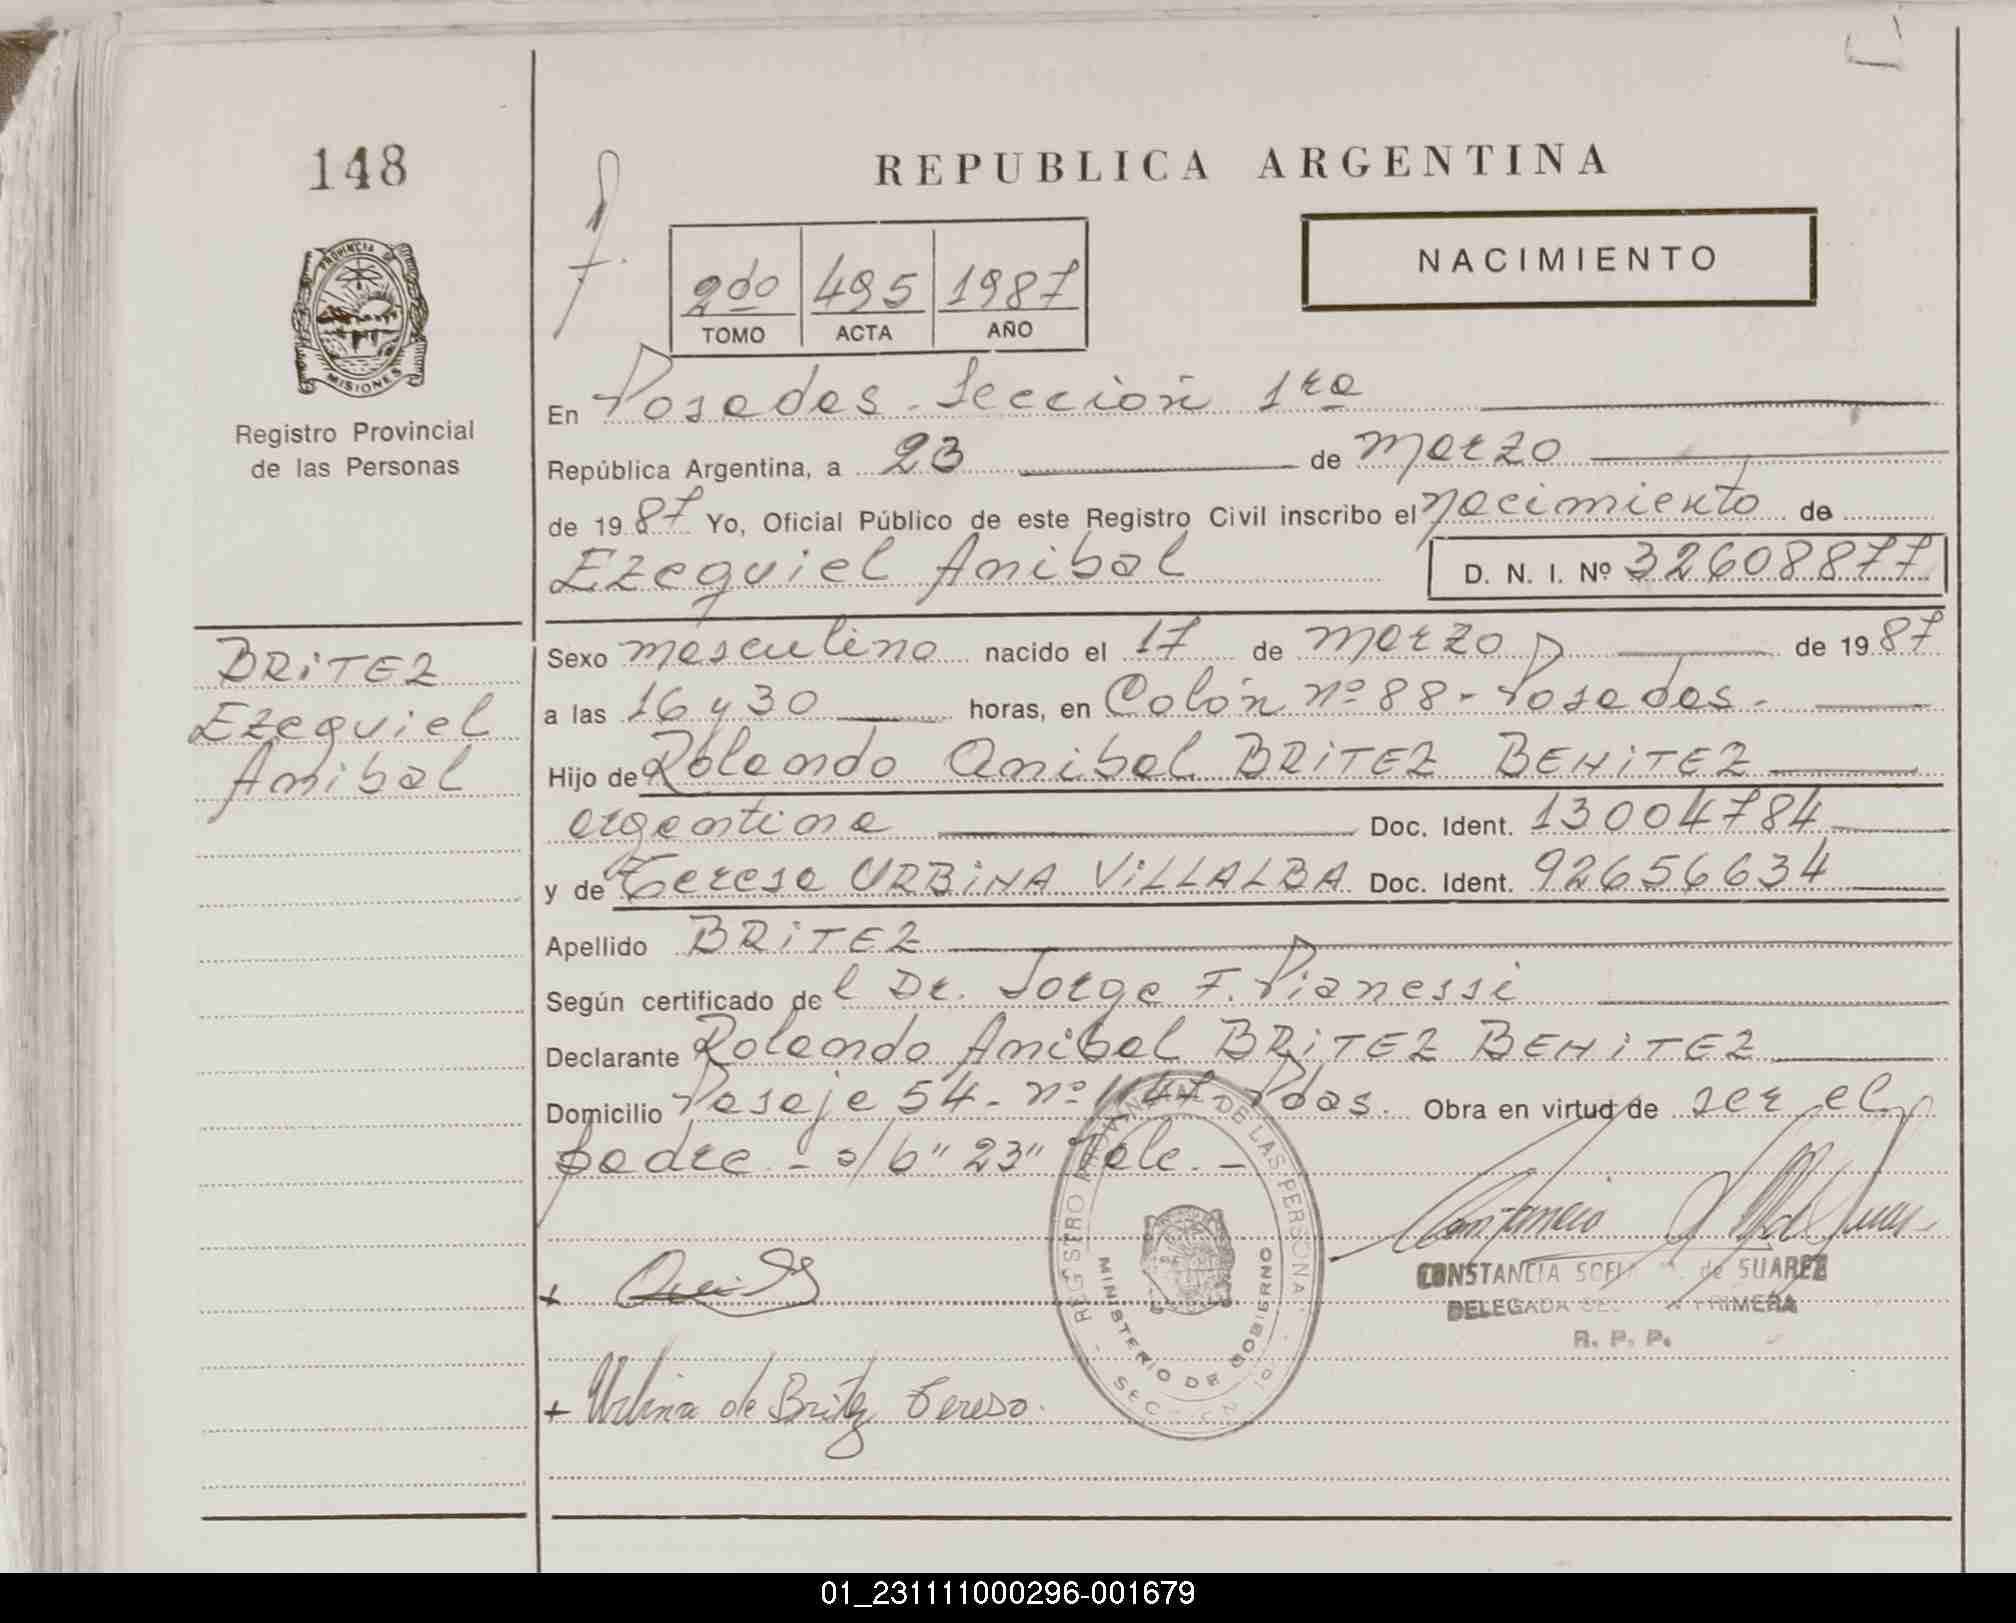 148
REPUBLICA ARGENTINA
NACIMIENTO
2do 495 1987
TOMO ACTA AÑO
PROVINCIA DE
MISIONES
Registro Provincial
de las Personas
En Posadas - Sección 1ra
República Argentina, a 23 de marzo
de 1987 Yo, Oficial Público de este Registro Civil inscribo el nacimiento de
Ezequiel Anibal D. N. I. Nº 32608877
BRITEZ
Ezequiel
Anibal
Sexo masculino nacido el 17 de marzo de 1987
a las 16 y 30 horas, en Colón nº 88 - Posadas.
Hijo de Rolando Anibal BRITEZ BENITEZ
argentina Doc. Ident. 13004784
y de Teresa URBINA VILLALBA Doc. Ident. 92656634
Apellido BRITEZ
Según certificado del Dr. Jorge F. Pianessi
Declarante Rolando Anibal BRITEZ BENITEZ
Domicilio Pasaje 54 - nº 1147 - Pdas. Obra en virtud de ser el
padre - s/b "23" Vale. -
REGISTRO PROVINCIAL DE LAS PERSONAS
MINISTERIO DE GOBIERNO
SECCION 01
CONSTANCIA SOFIA M. de SUAREZ
DELEGADA SECCION PRIMERA
R. P. P.
+
+ Urbina de Britez Teresa.
01_231111000296-001679